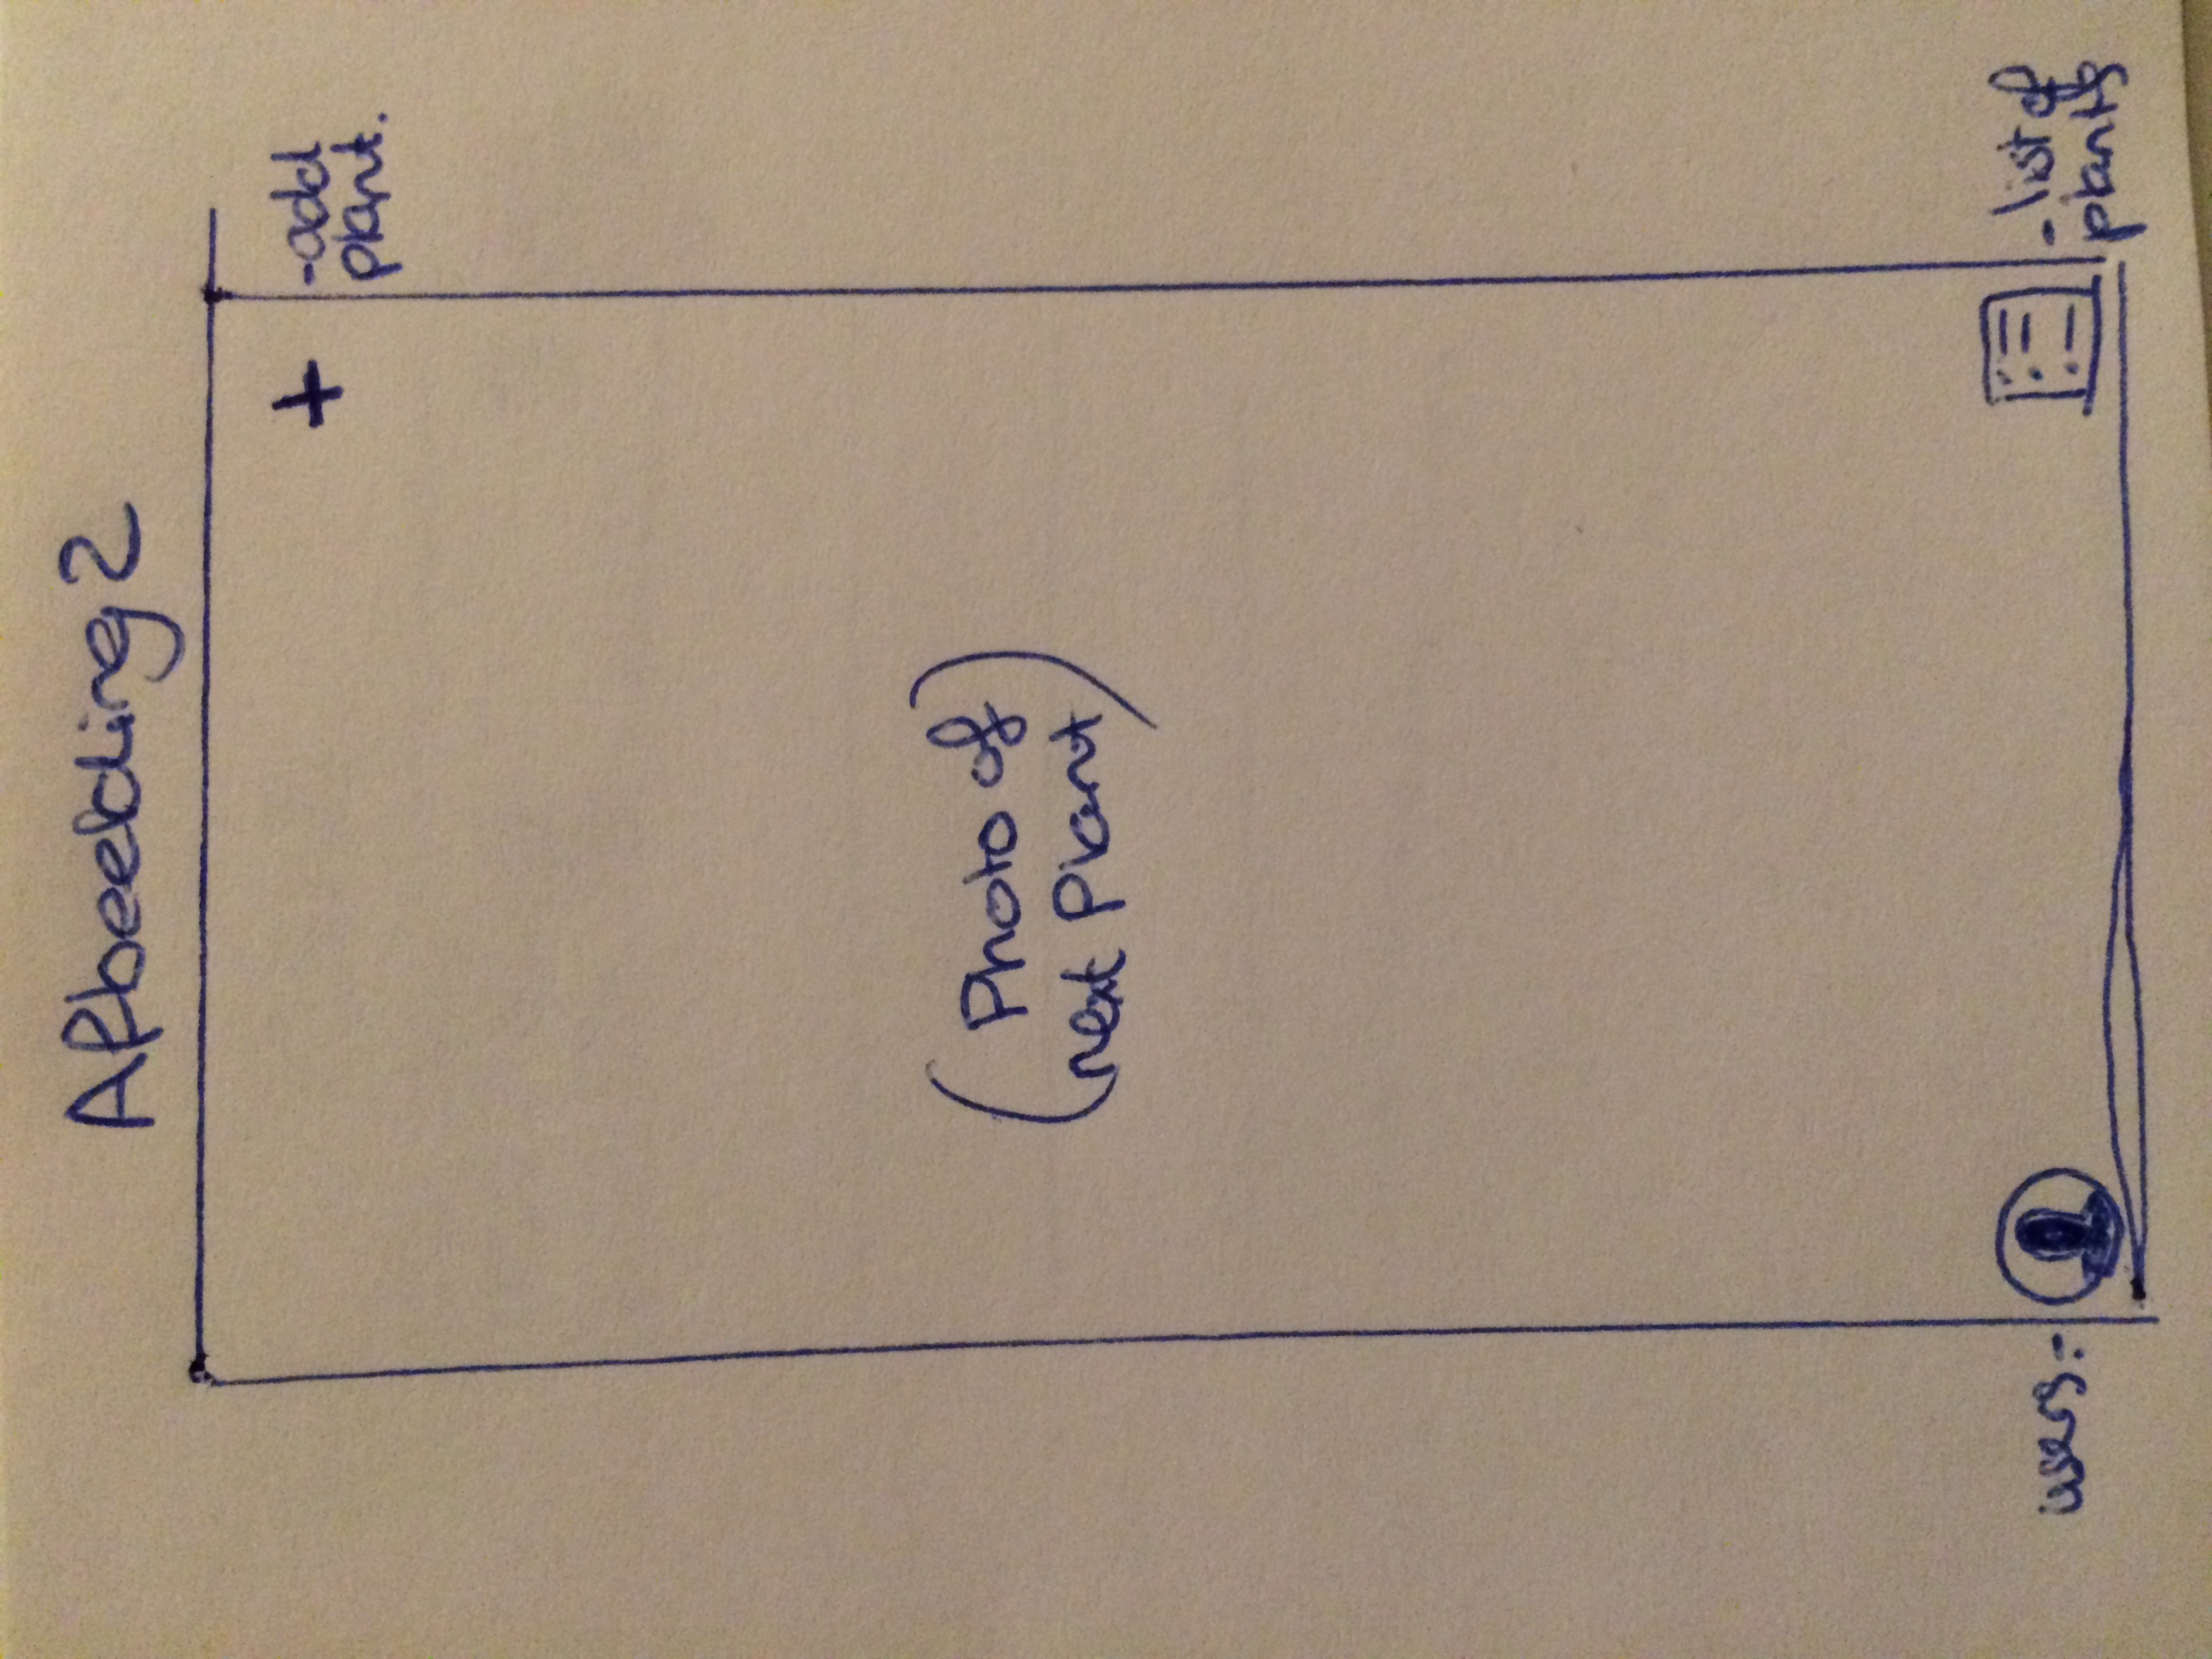 Afbeelding 2
+
-add
plant.
(Photo of
next Plant)
users:-
-list of
plants